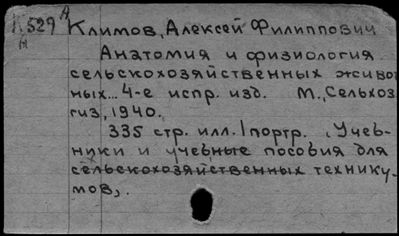 К529 А
Н
Климов, Алексей Филиппович
Анатомия и физиология
сельскохозяйственных живот
ных... 4-е испр. изд. М., Сельхоз
гиз, 1940.
335 стр. илл. 1 портр. (Учеб-
ники и учебные пособия для
сельскохозяйственных технику-
мов).